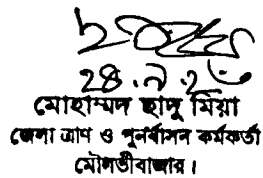 ২৪.৯.২৬
মোহাম্মদ ছাদু মিয়া
জেলা ত্রাণ ও পুনর্বাসন কর্মকর্তা
মৌলভীবাজার।